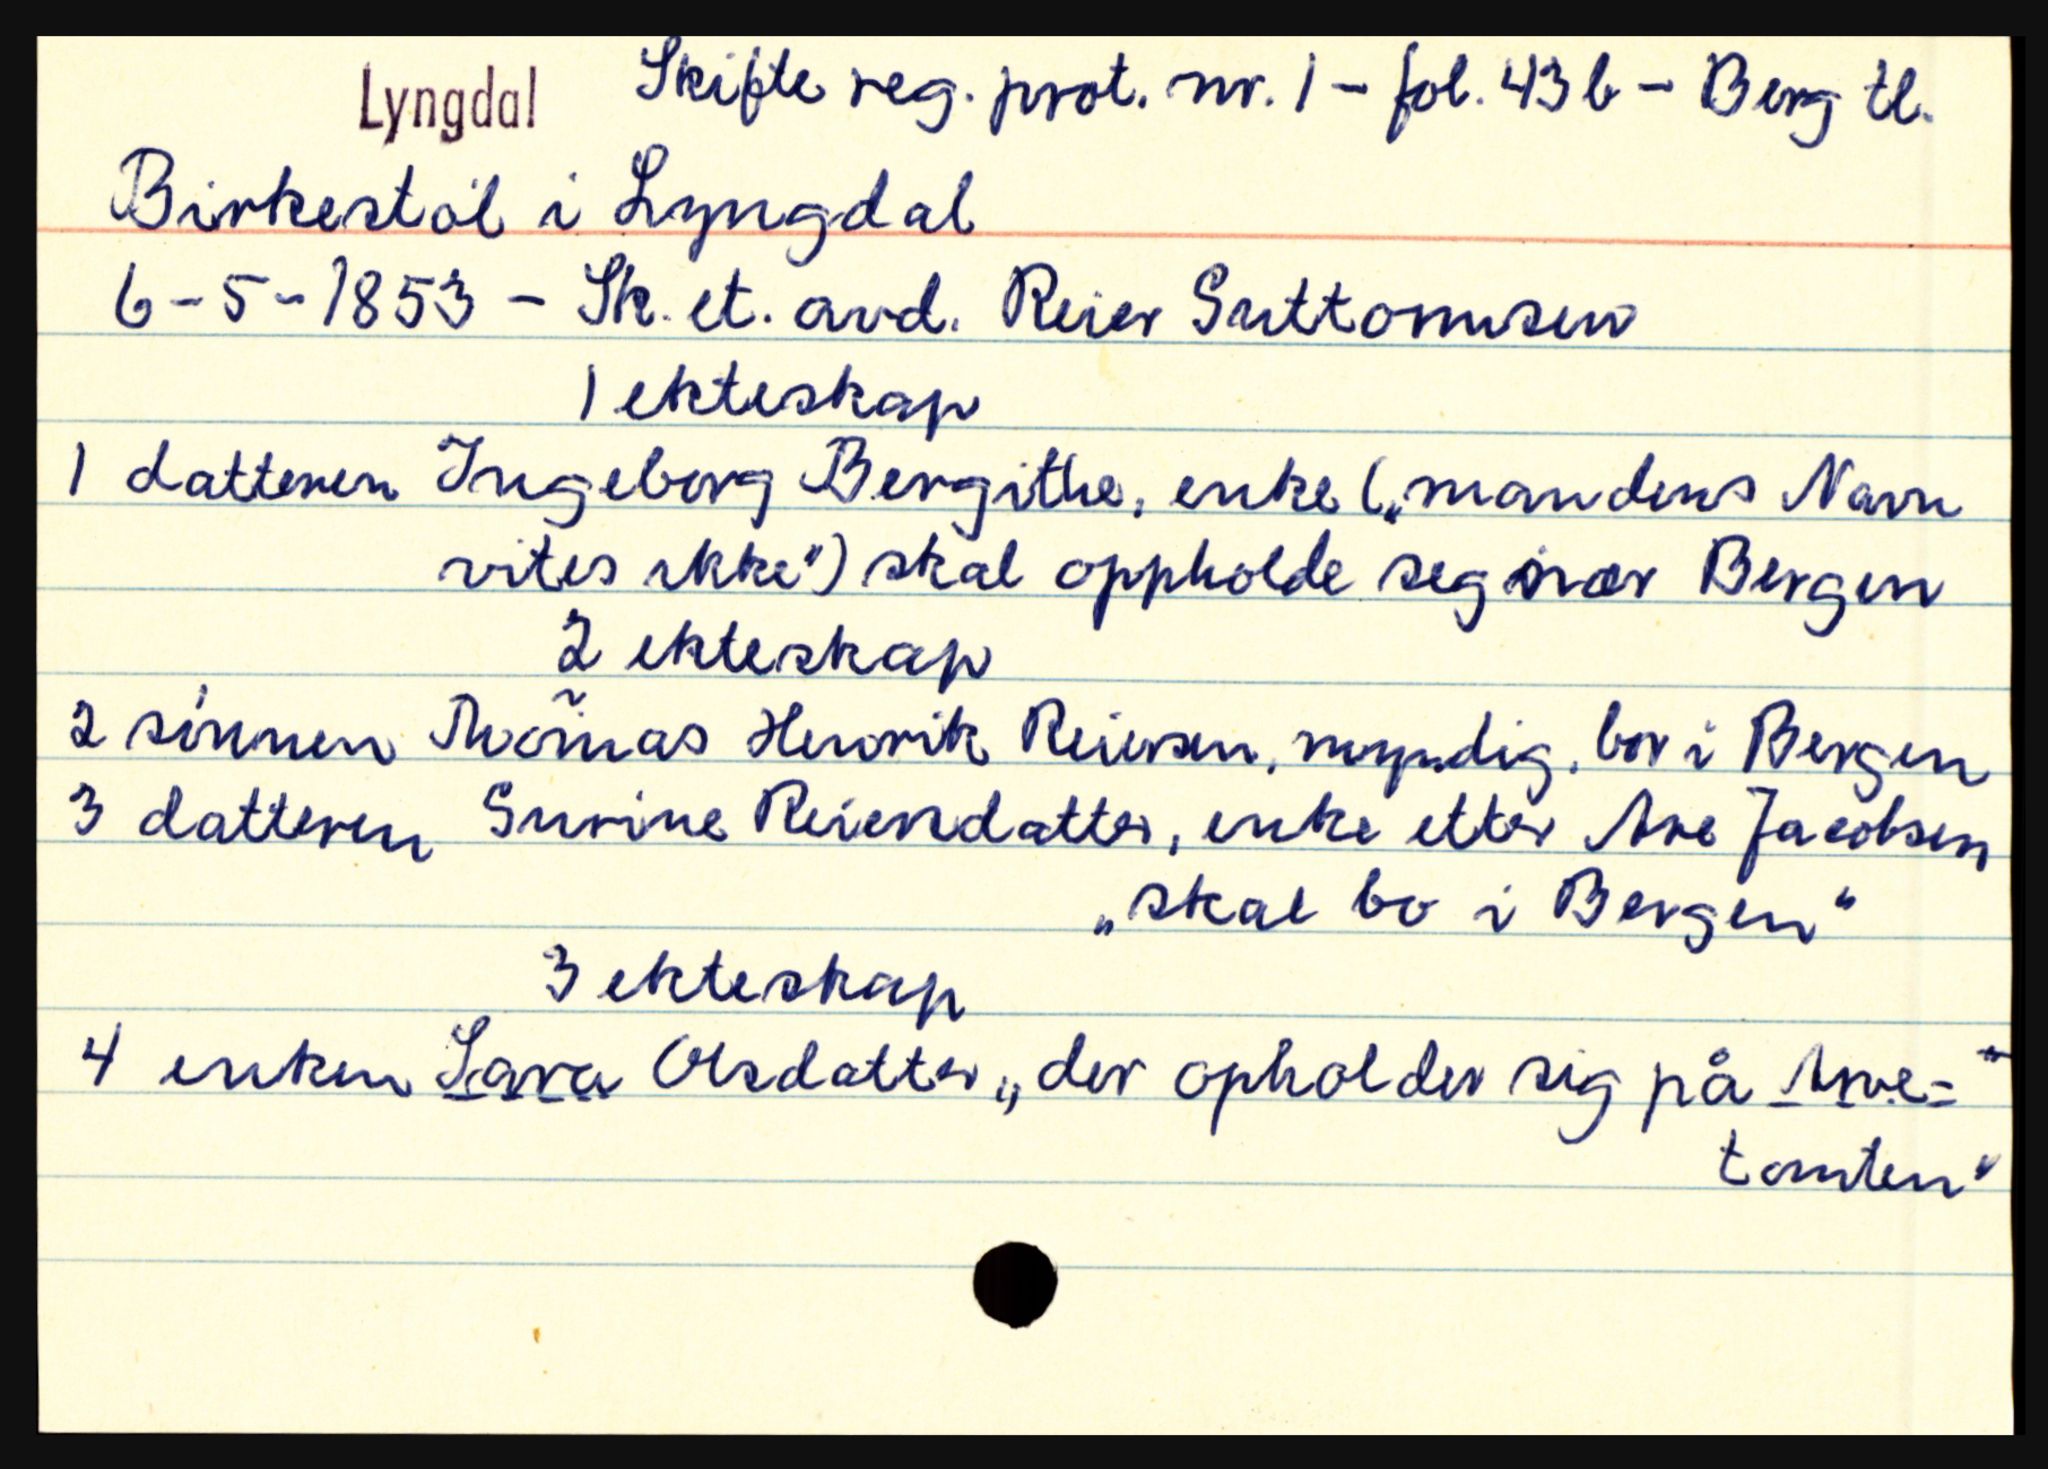 Lyngdal Skifte reg. prot. nr. 1 – fol. 43b – Berg tl.
Birkestøl i Lyngdal
6-5-1853 – Sk. et. avd. Reier Guttormsen
1 ekteskap
1 datteren Ingeborg Bergithe, enke („mandens Navn
vites ikke") skal oppholde seg nær Bergen
2 ekteskap
2 sønnen Thomas Henrik Reiersen, myndig, bor i Bergen
3 datteren Gurine Reiersdatter, enke etter Are Jacobsen
„skal bo i Bergen"
3 ekteskap
4 enken Sara Olsdatter „der opholder sig på Arve-"
tomten"